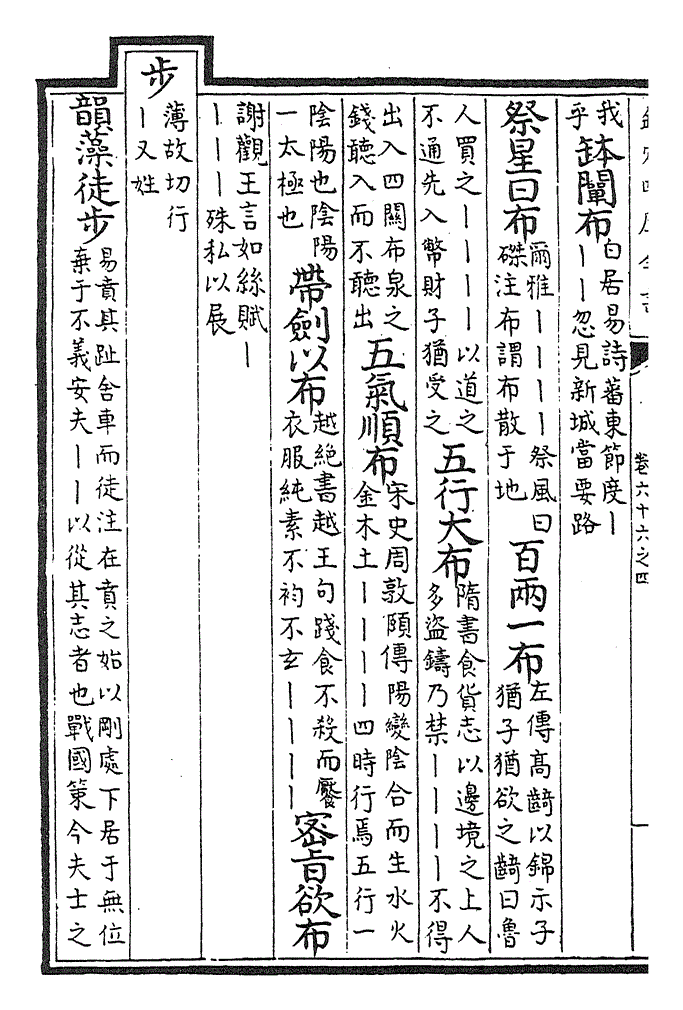 卷六十六之四
我
乎
缽闡布
白居易詩蕃東節度丨
丨丨忽見新城當要路
祭星曰布
爾雅丨丨丨丨祭風曰
磔注布謂布散于地
百兩一布
左傳高齮以錦示子
猶子猶欲之齮曰魯
人買之丨丨丨丨以道之
不通先入幣財子猶受之
五行大布
隋書食貨志以邊境之上人
多盜鑄乃禁丨丨丨丨不得
出入四關布泉之
錢聽入而不聽出
五氣順布
宋史周敦頤傳陽變陰合而生水火
金木土丨丨丨丨四時行焉五行一
陰陽也陰陽
一太極也
帶劍以布
越絶書越王句踐食不殺而饜
衣服純素不袀不玄丨丨丨丨
密旨欲布
謝觀王言如絲賦丨
丨丨丨殊私以展
步
薄故切行
丨又姓
韻藻徒步
易賁其趾舎車而徒注在賁之始以剛處下居于無位
棄于不義安夫丨丨以從其志者也戰國策今夫士之